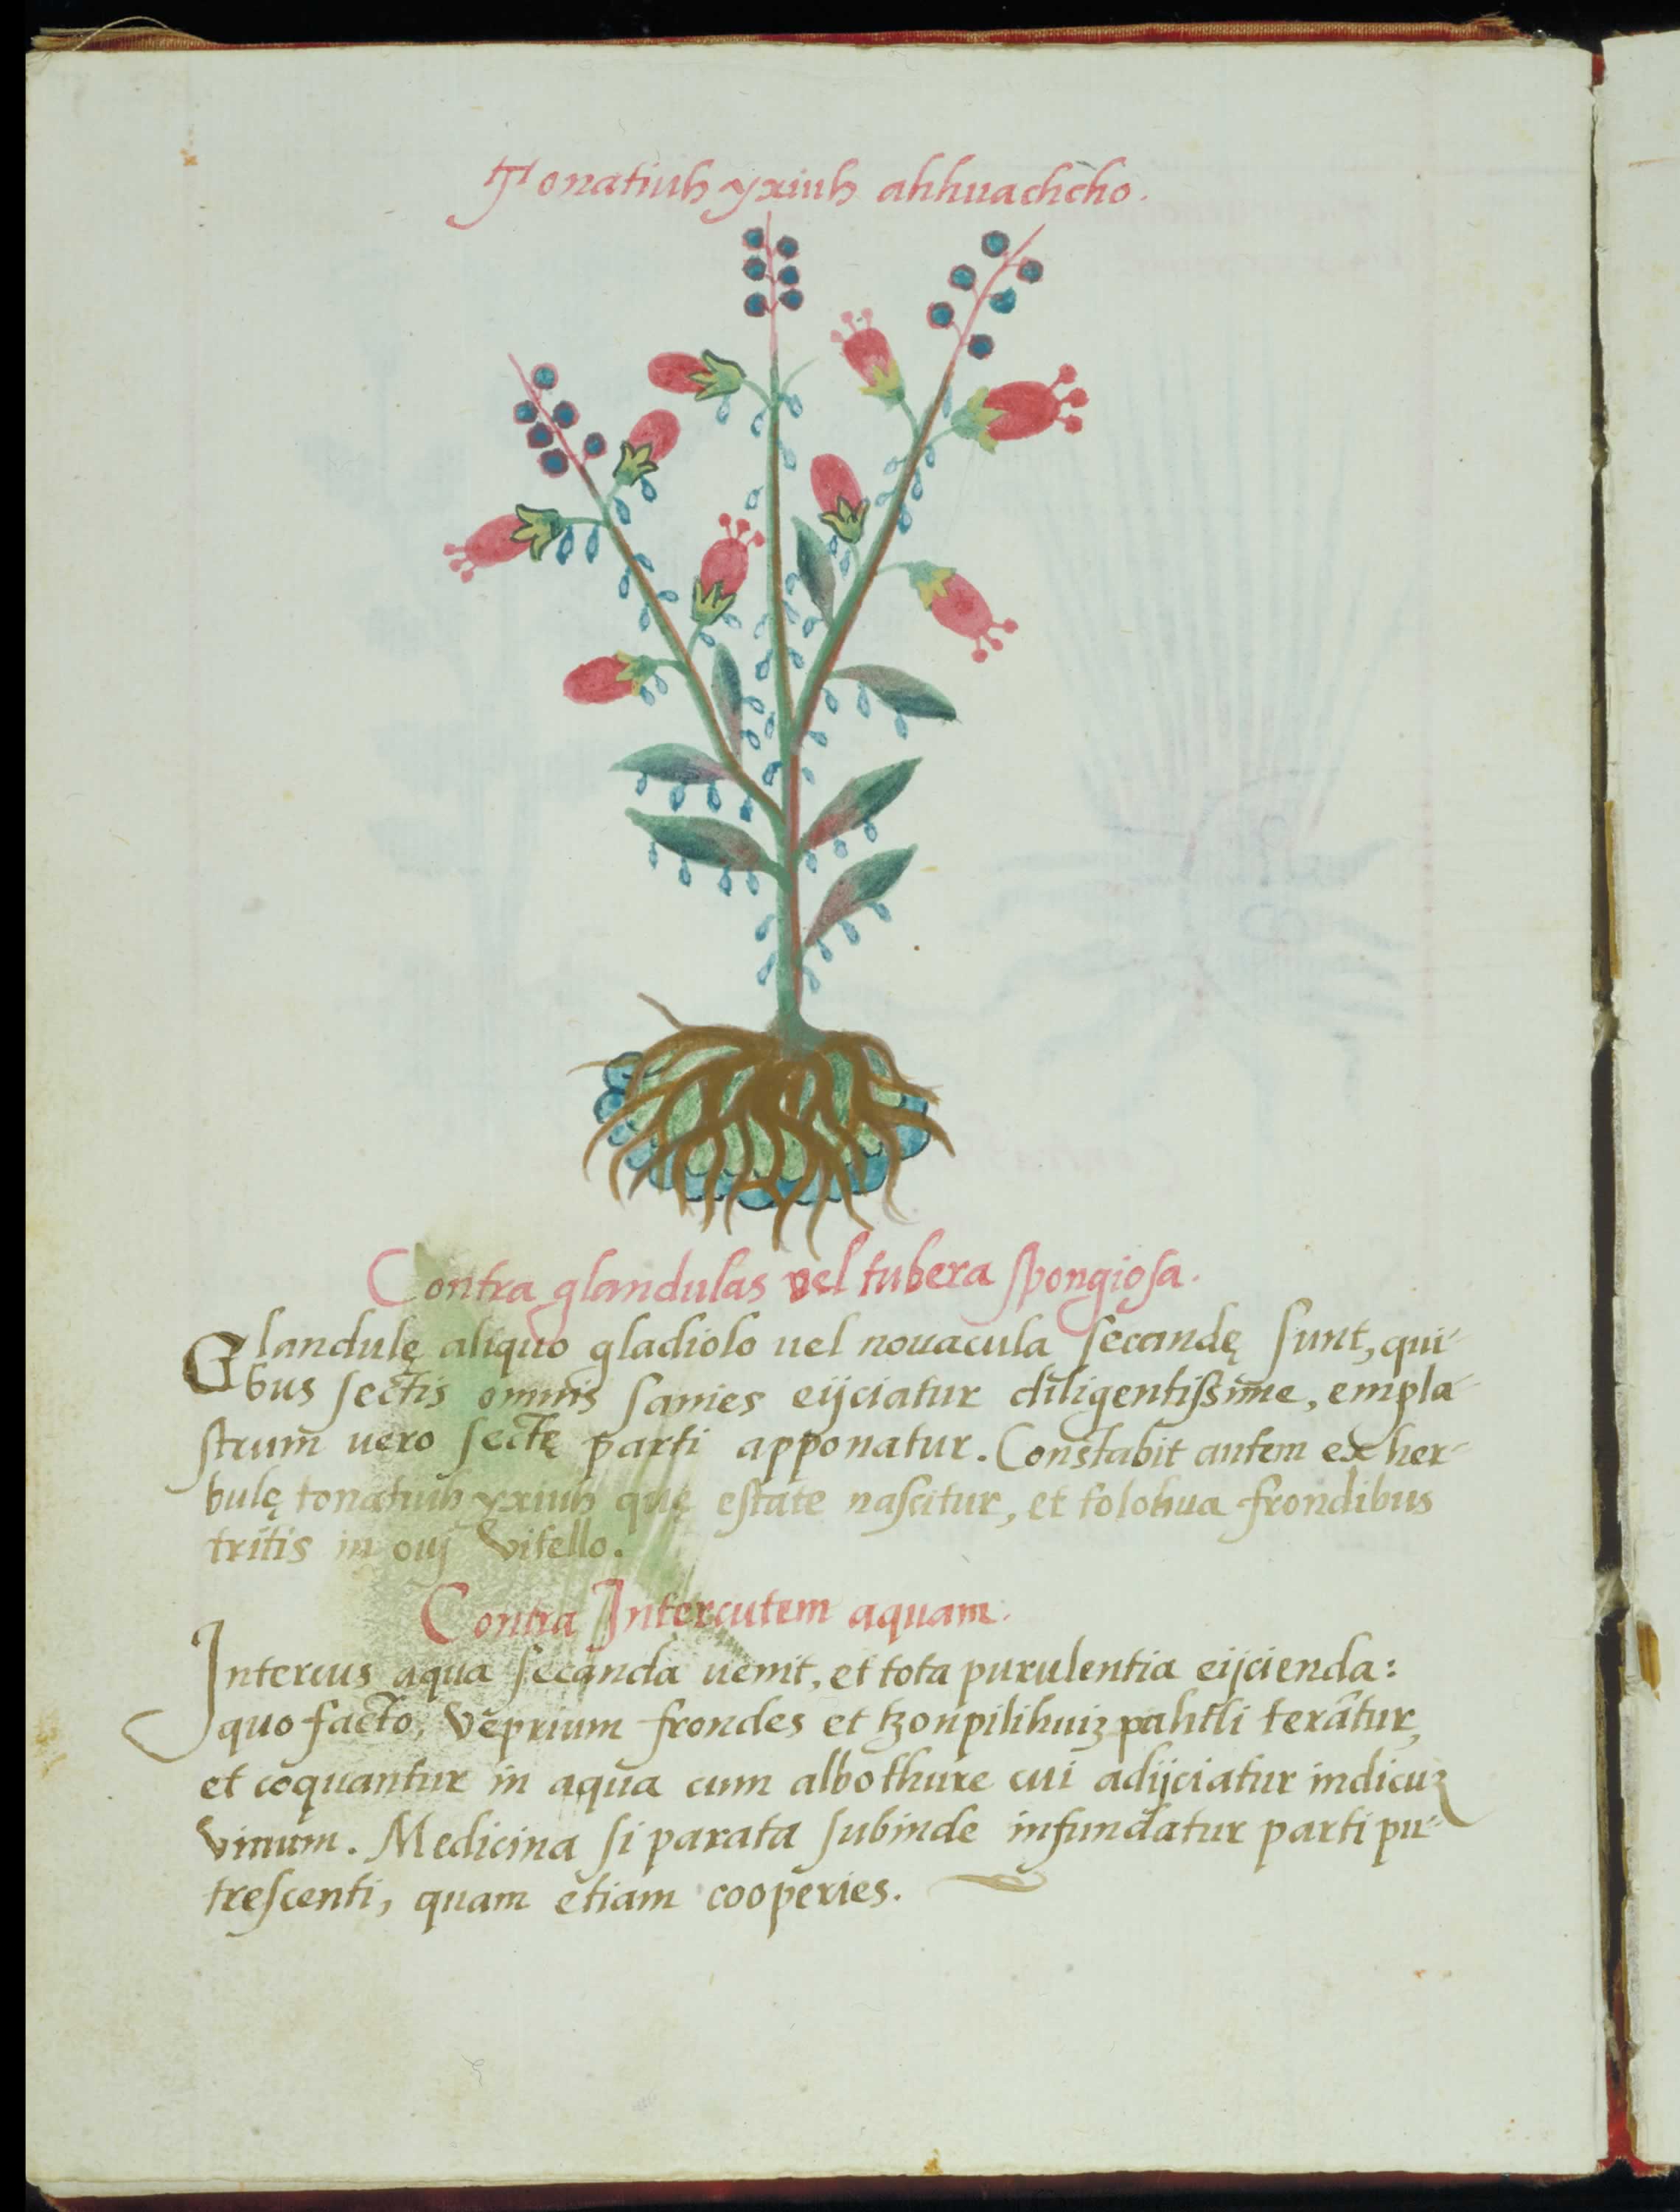 Tonatiuh yxiuh ahhuachcho.
Contra glandulas vel tubera spongiosa.
Glandulę aliquo gladiolo uel nouacula secandę sunt, qui-
bus sectis omnis sanies eijciatur diligentissime, empla-
strum uero sectę parti apponatur. Constabit autem ex her-
bulę tonatiuh yxiuh quę estate nascitur, et tolohua frondibus
tritis in ouj vitello.
Contra Intercutem aquam.
Intercus aqua secanda uenit, et tota purulentia eijcienda:
quo facto, veprium frondes et tzonpilihuizpahtli terātur,
et coquantur in aqua cum albo thure cui adijciatur indicuz
vinum. Medicina si parata subinde infundatur parti pu-
trescenti, quam etiam cooperies.